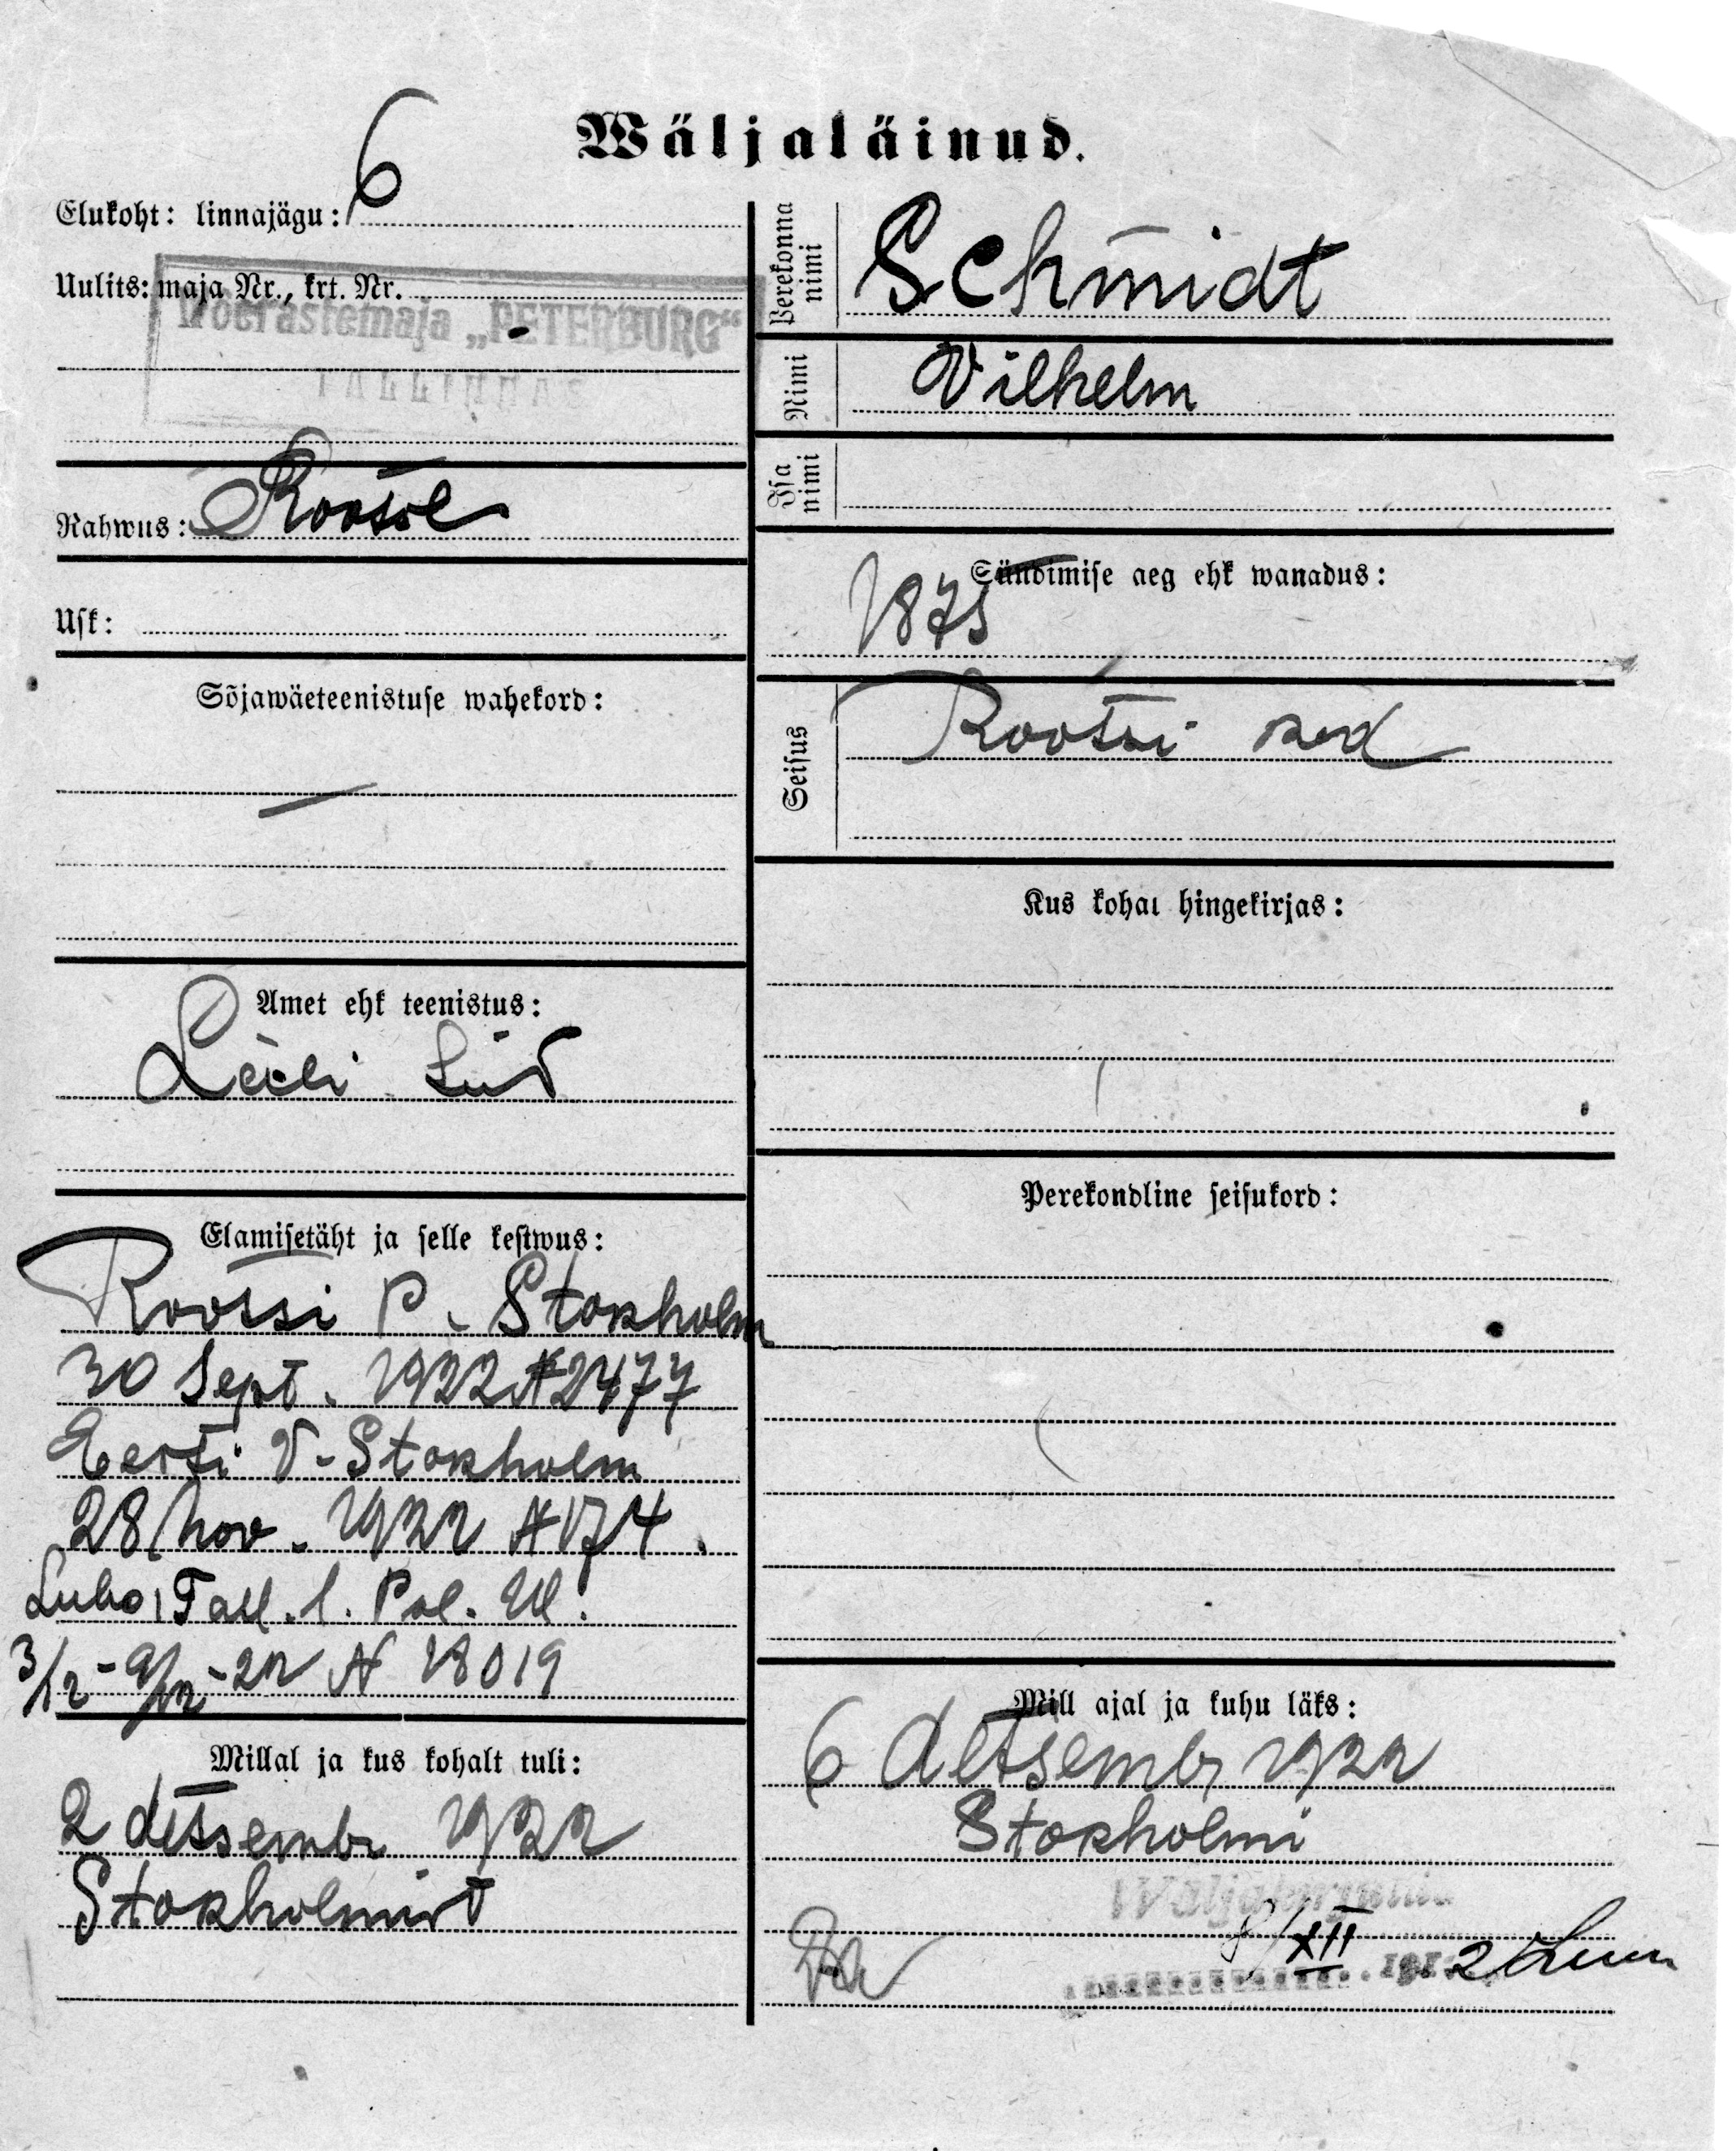 Wäljaläinud.
Elukoht: linnajägu: 6
Uulits: maja Nr., krt. Nr.
Võõrastemaja „PETERBURG“
TALLINNAS
Rahwus: Rootsl
Usk:
Sõjawäeteenistuse wahekord:
—
Amet ehk teenistus:
Elamisetäht ja selle kestwus:
Rootsi P. Stokholm
30 Sept. 1922 N 2477
Eesti V-Stokholm
28 nov. 1922 N 174.
Luba Tall. l. Pol. Ül.
3/12 - 9/12 - 22 N 18019
Millal ja kus kohalt tuli:
2 detsembr 1922
Stokholmist
Perekonna nimi
Schmidt
Nimi
Vilhelm
Isa nimi
Sündimise aeg ehk wanadus:
1875
Seisus
Rootsi kod
Kus kohal hingekirjas:
Perekondline seisukord:
Mill ajal ja kuhu läks:
6 detsembr 1922
Stokholmi
8/XII 191 2